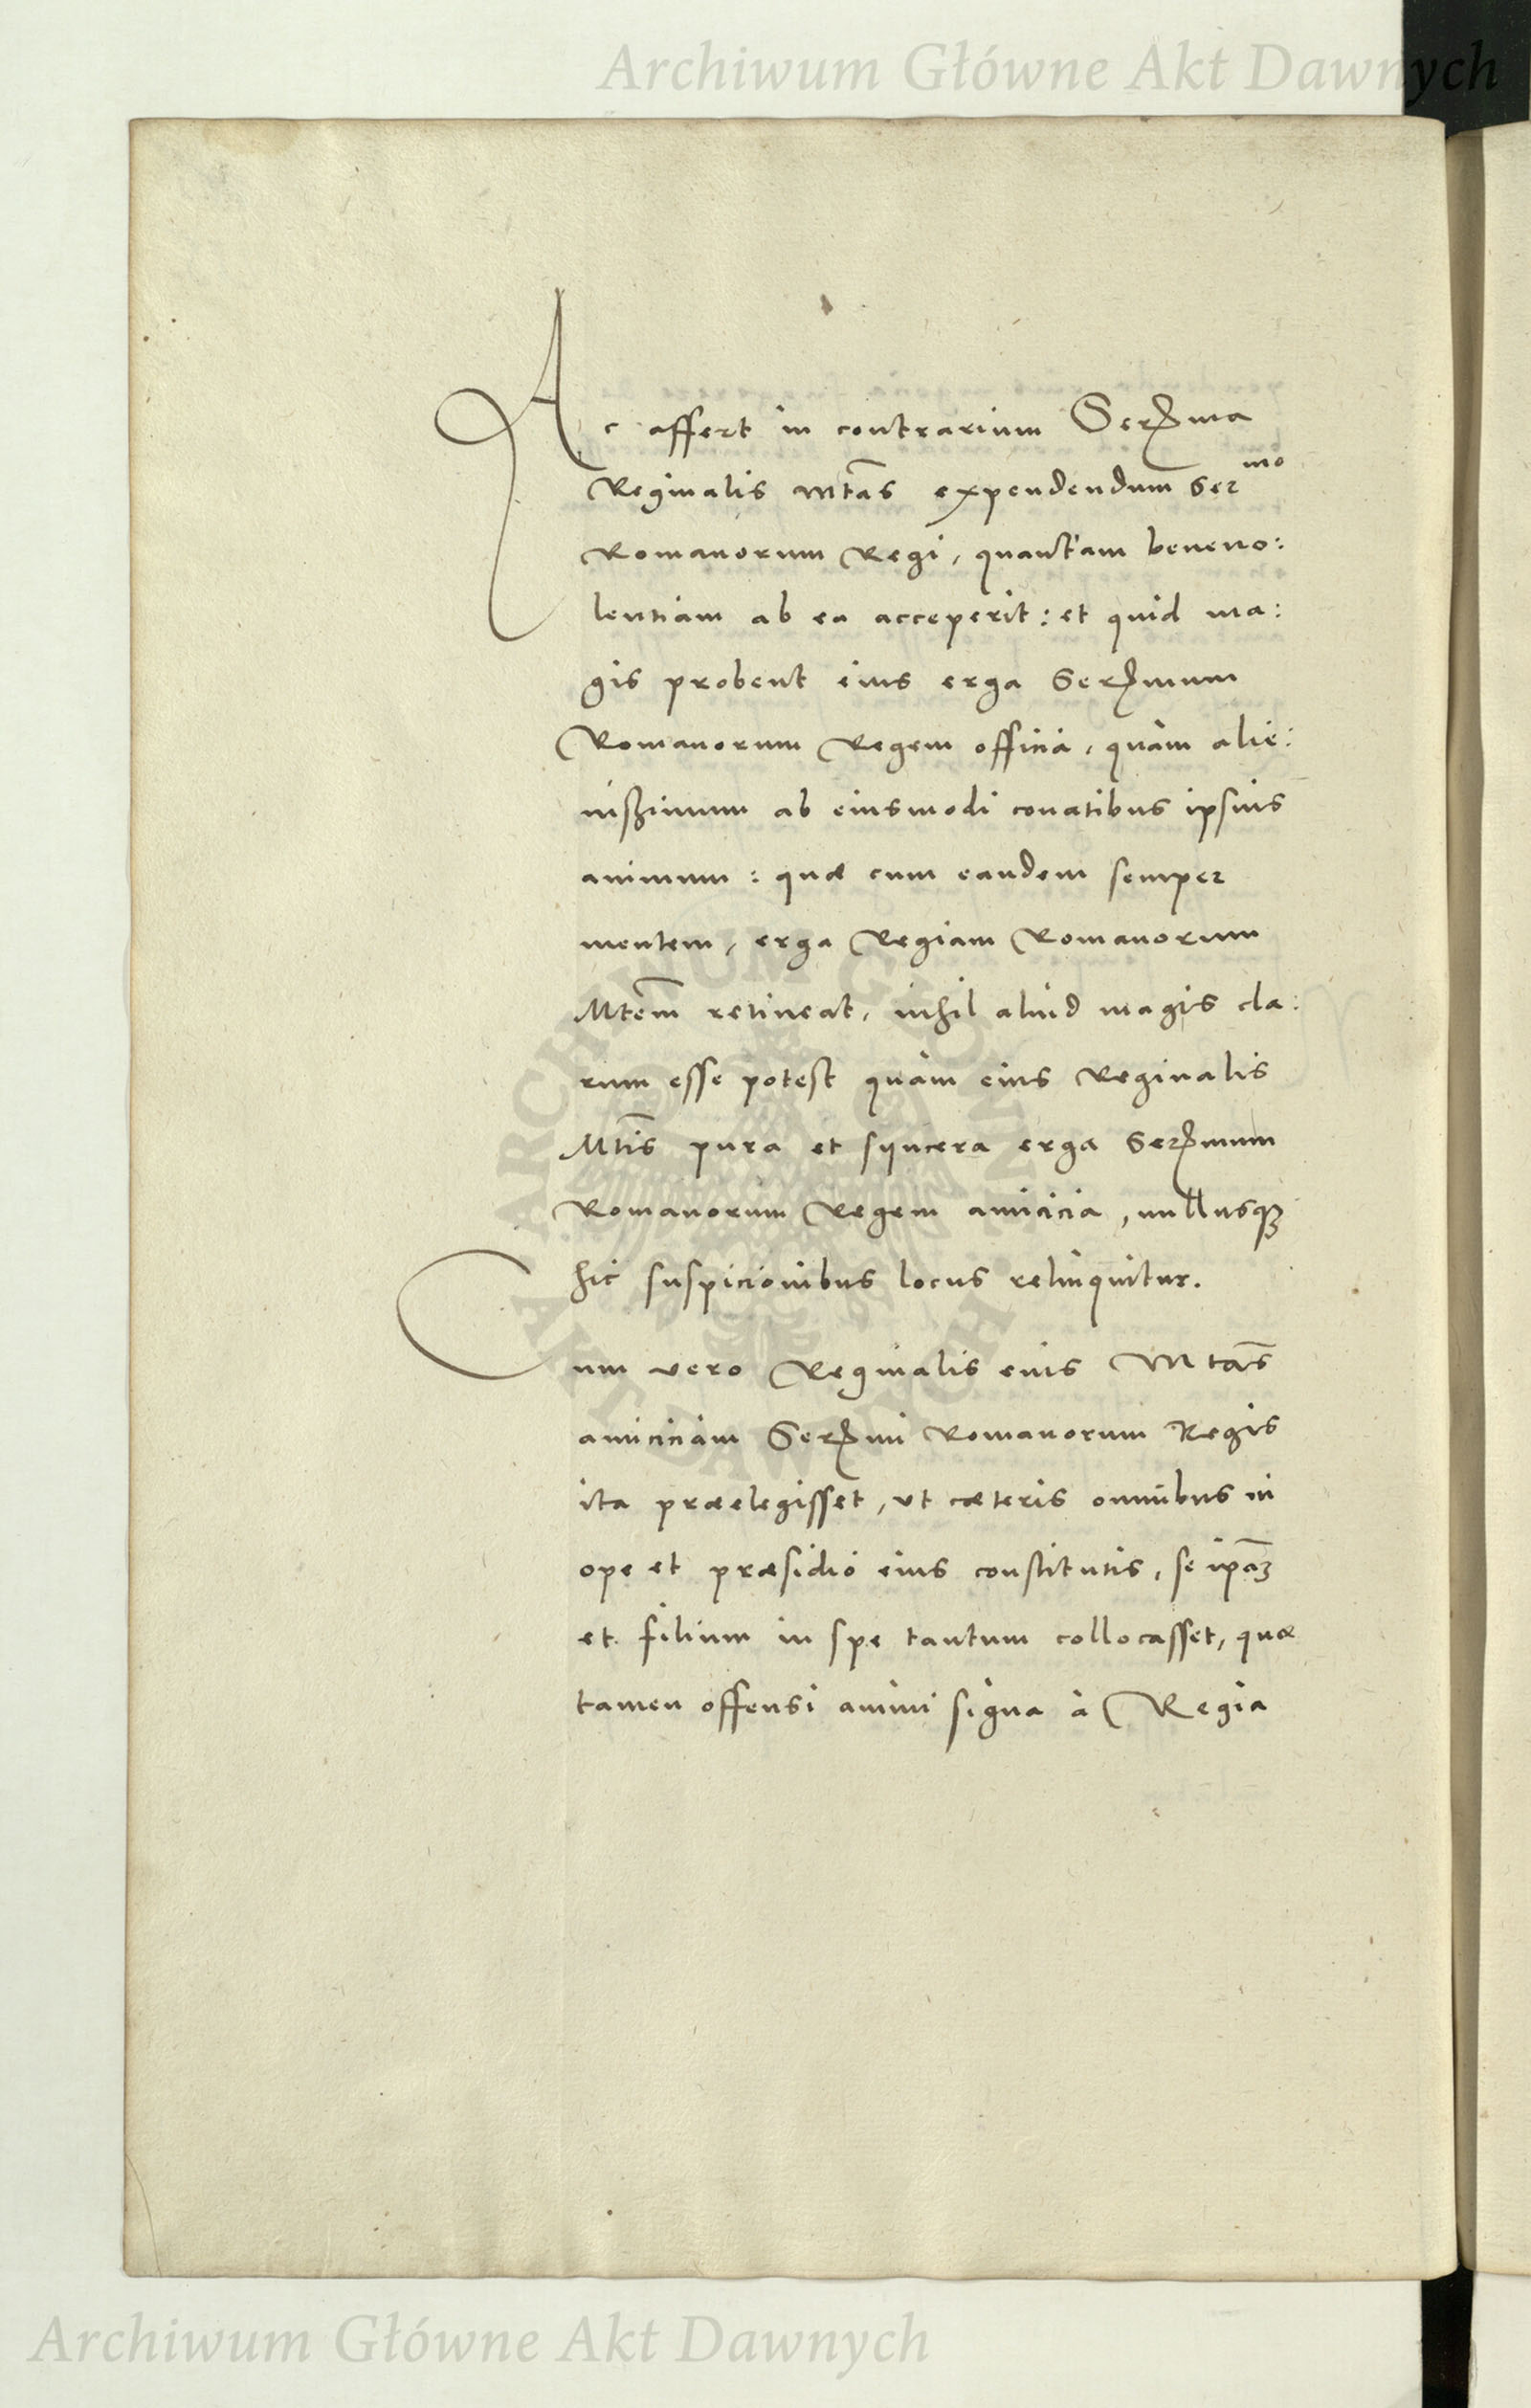 Archiwum Główne Akt Dawnych
Ac affert in contrarium Serma
Reginalis Mtas expendendum Sermo
Romanorum Regi, quantam beneuo:
lentiam ab ea acceperit: et quid ma:
gis probent eius erga Sermum
Romanorum Regem officia, quàm alie:
nißimum ab eiusmodi conatibus ipsius
animum: quæ cum eandem semper
mentem, erga Regiam Romanorum
Mtem retineat, nihil aliud magis cla:
rum esse potest quàm eius Reginalis
Mtis pura et syncera erga Sermum
Romanorum Regem amicicia, nullusq3
hic suspicionibus locus relinquitur.
Cum vero Reginalis eius Mtas
amiciciam Sermi Romanorum Regis
ita præelegisset, vt cæteris omnibus in
ope et præsidio eius constitutis, se ipa3
et filium in spe tantum collocasset, quæ
tamen offensi animi signa à Regia
ARCHIWUM GŁÓWNE
AKT DAWNYCH
Archiwum Główne Akt Dawnych